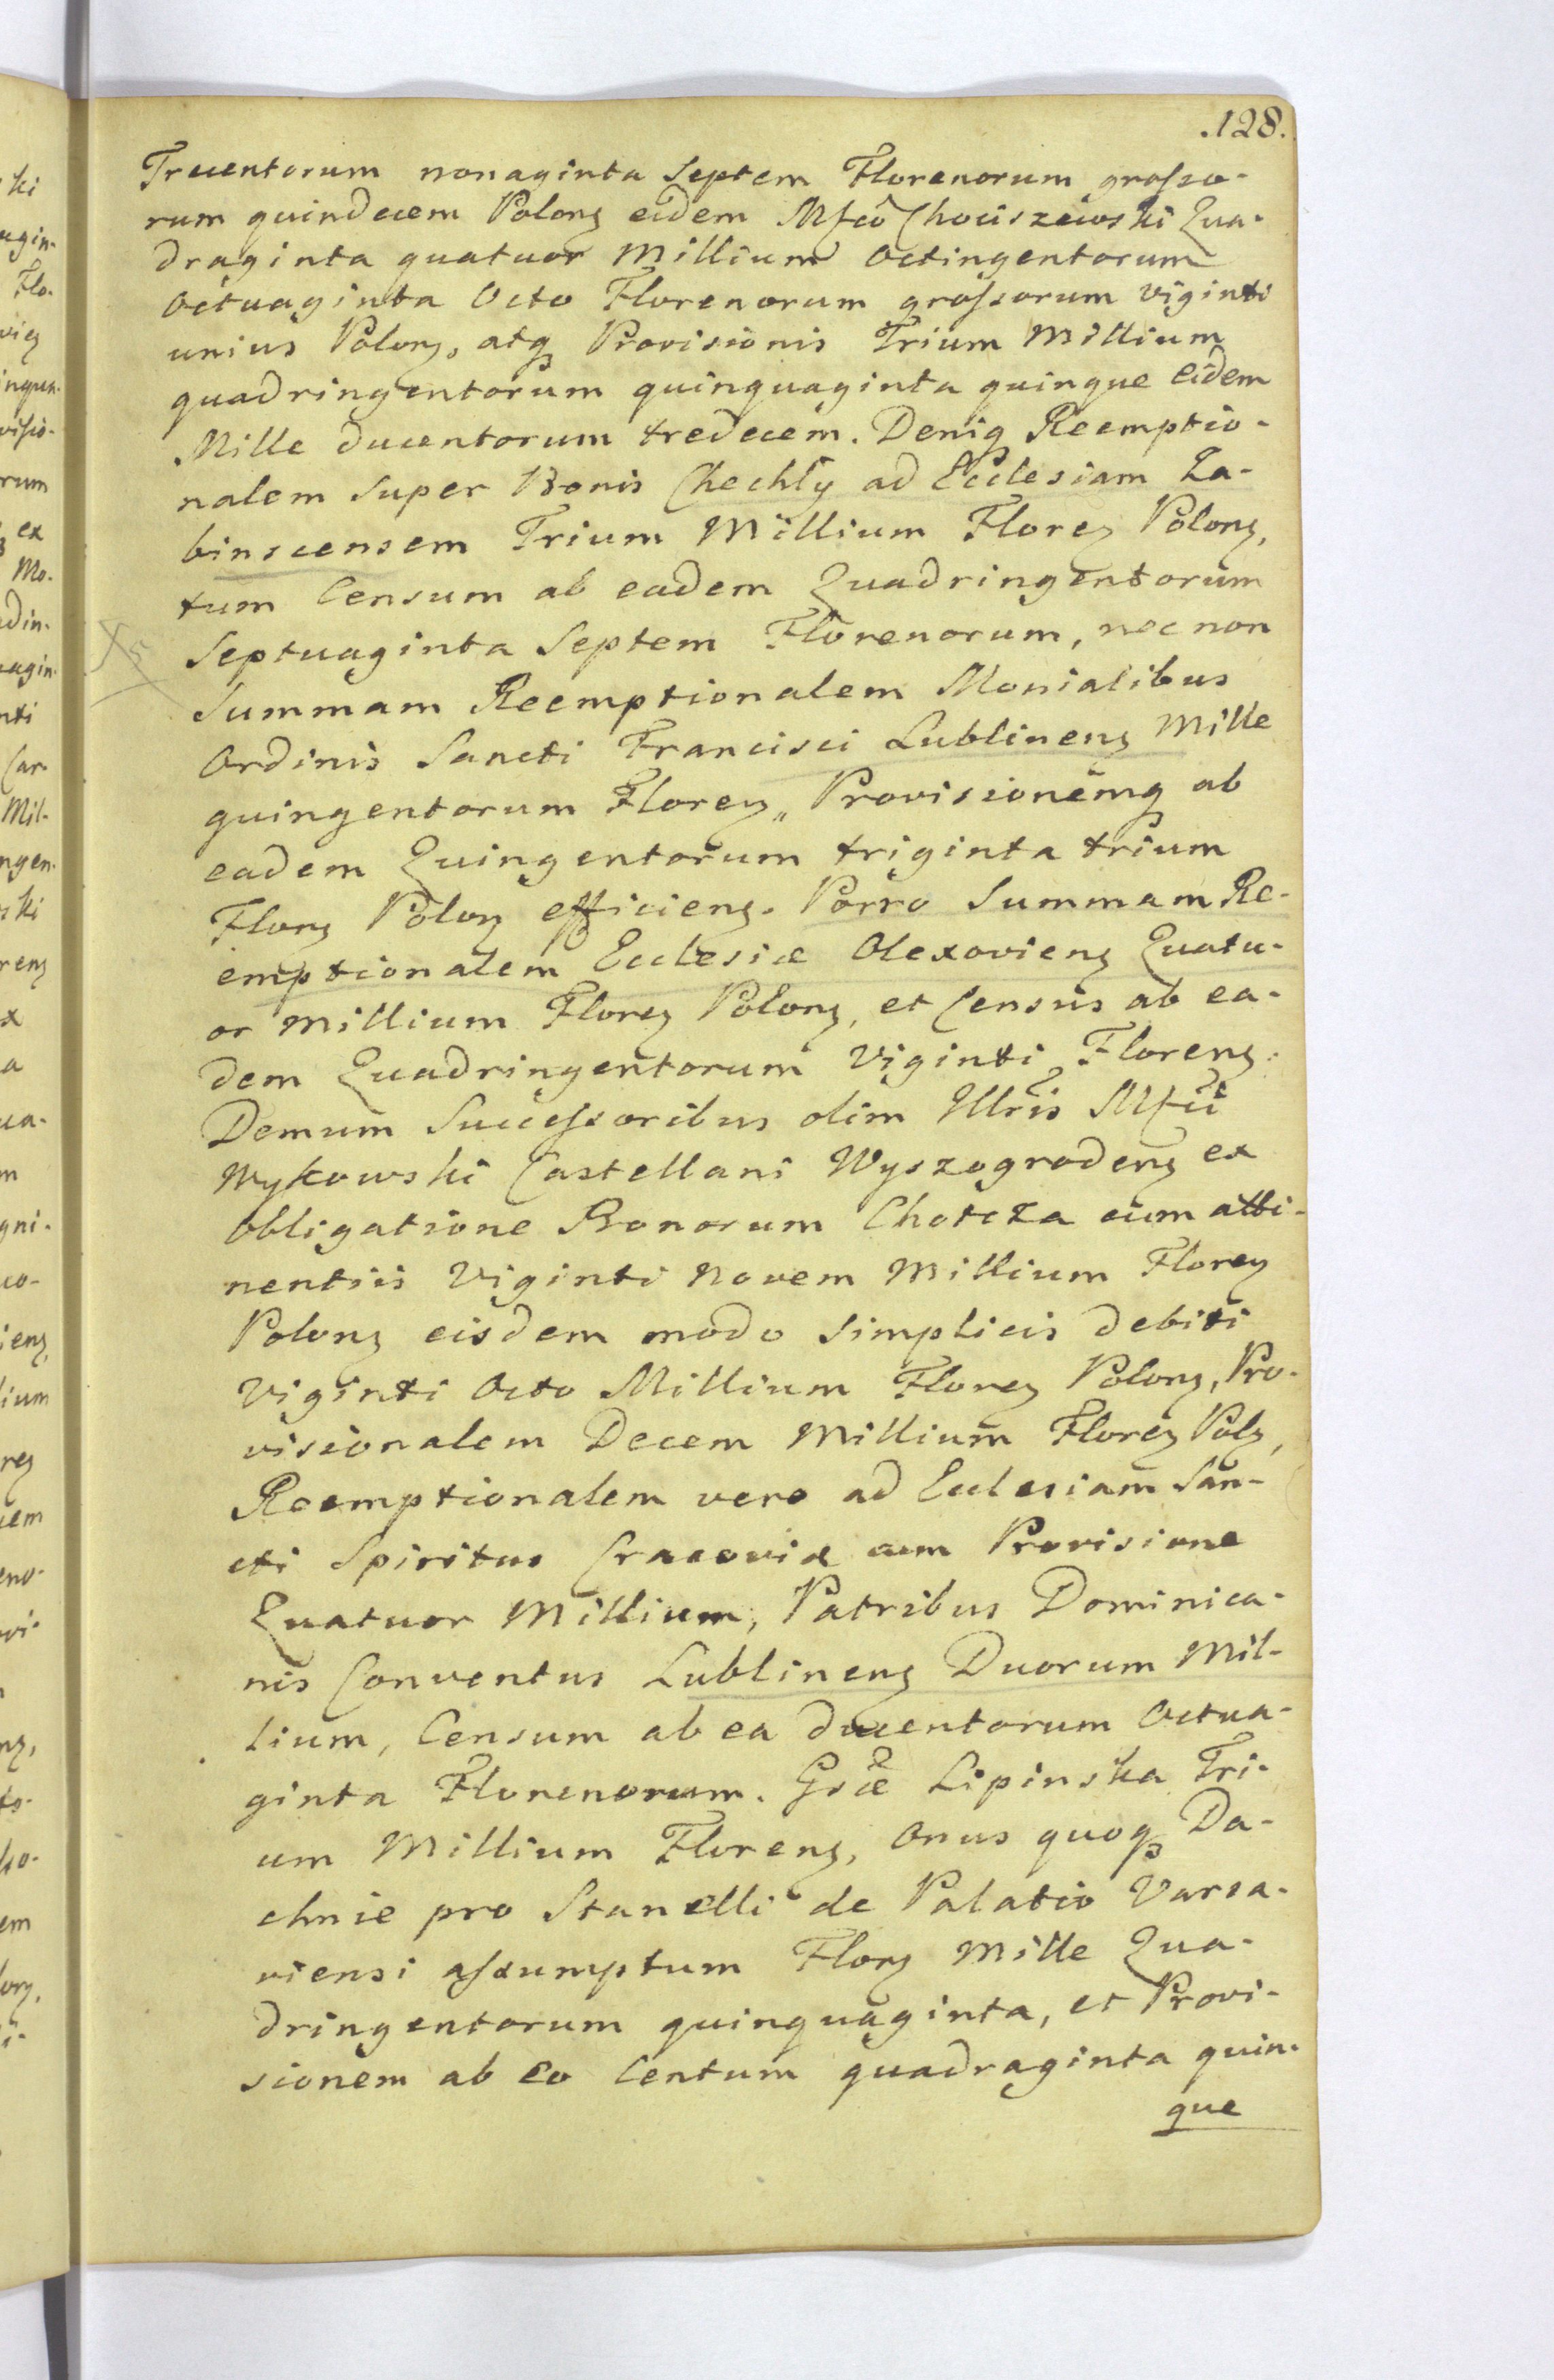 .128.
Trecentorum nonaginta Septem Florenorum grosso-
rum quindecem Polonz eidem Mfco Chociszewski Qua-
draginta quatuor Millium Octingentorum
Octuaginta Octo Florenorum grossorum viginti
unius Polonz, atq Provisionis Trium Millium
quadringentorum quinquaginta quinque eidem
Mille ducentorum tredecem. Deniq Reemptio-
nalem super Bonis Chechły ad Ecclesiam Ża-
binscensem Trium Millium Florez Polonz,
tum Censum ab eadem Quadringentorum
Septuaginta Septem Florenorum, nec non
Summam Reemptionalem Monialibus
Ordinis Sancti Francisci Lublinenz Mille
quingentorum Florenz, Provisionemq ab
eadem Quingentorum triginta trium
Florz Polonz efficienz. Porro Summam Re-
emptionalem Ecclesiæ Olexovienz Quatu-
or Millium Florez Polonz, et Census ab ea-
dem Quadringentorum Viginti Florenz.
Demum Successoribus olim Illris Mfci
Wykowski Castellani Wyszogrodenz ex
obligatione Bonorum Chotcza cum atti-
nentiis Viginti Novem Millium Florez
Polonz eisdem modo Simplicis debiti
Viginti Octo Millium Florez Polonz, Pro-
visionalem Decem Millium Florez Polz,
Reemptionalem vero ad Ecclesiam San-
cti Spiritus Cracoviæ cum Provisione
Quatuor Millium, Patribus Dominica-
nis Conventus Lublinenz Duorum Mil-
lium, Censum ab ea ducentorum Octua-
ginta Florenorum. Gsæ Lipinska Tri-
um Millium Florenz, Onus quoq Da-
chnie pro Stanelli de Palatio Varsa-
viensi assumptum Florz Mille Qua-
dringentorum quinquaginta, et Provi-
sionem ab eo Centum quadraginta quin-
que